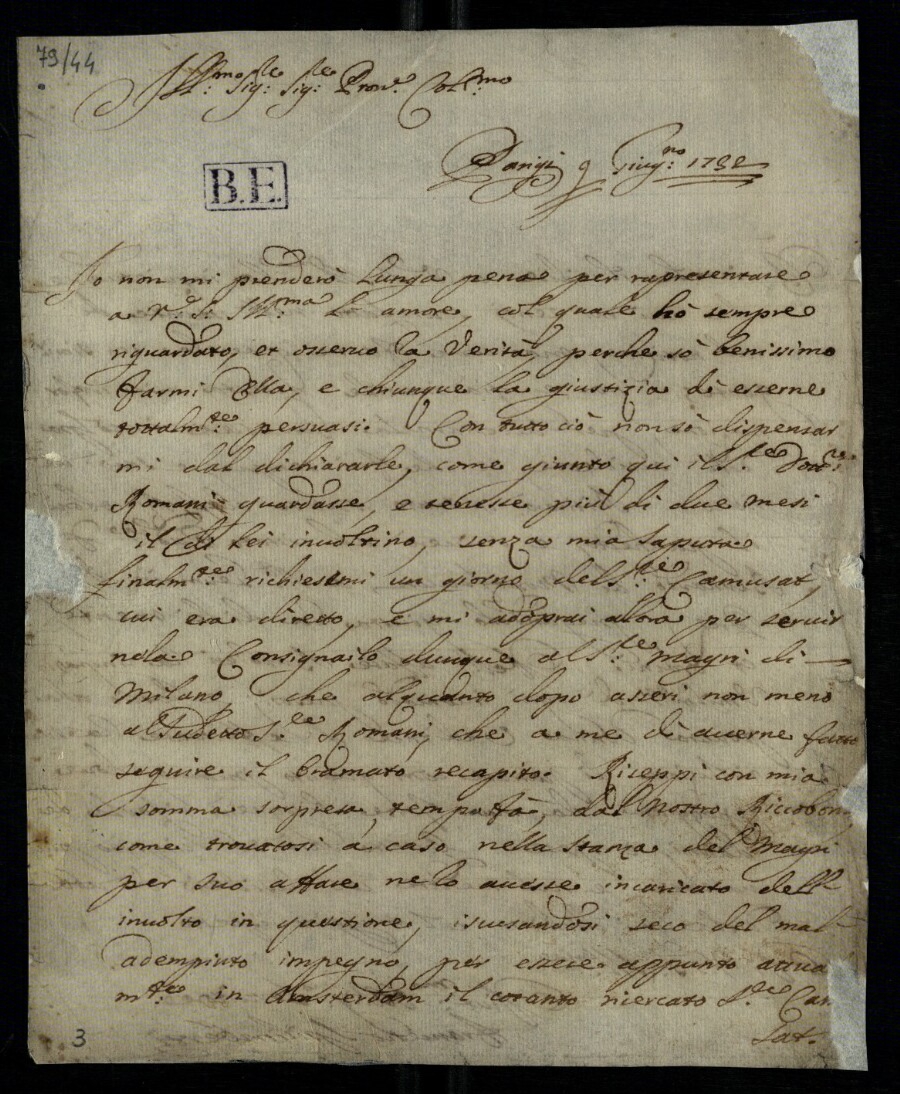 79/44
Ill:mo Sig:re Sig:re Pron:e Col:mo
Parigi 9 Giug:no 1732
B.E.
Io non mi prenderò lunga pena per rapresentare
a V:S: Ill:ma L'amore, col quale hò sempre
riguardato, et osservo la Verità, perche sò benissimo
farmi Ella, e chiunque la giustizia di esserne
totalm:te persuasi. Con tutto ciò non sò dispensar
mi dal dichiararle, come giunto qui il S:re Dott:e
Romani guardasse, e tenesse più di due mesi
il di Lei involtino, senza mia saputa
finalm:te richiesemi un giorno del S:re Camusat,
cui era diretto, e mi adoprai allora per servir
nela. Consignailo dunque al S:re Magri di
Milano che alquanto dopo asserì non meno
al sudetto S:re Romani, che a me di averne fatto
seguire il bramato recapito. Riseppi con mia
somma sorpresa, tempo fà, dal Nostro Riccoboni
come trovatosi à caso nella stanza del Magri
per suo affare nelo avesse incaricato dell'
involto in questione, iscusandosi seco del mal
adempiuto impegno, per essere appunto attua
m:te in Amsterdam il cotanto ricercato S:re Cam
sat.
3